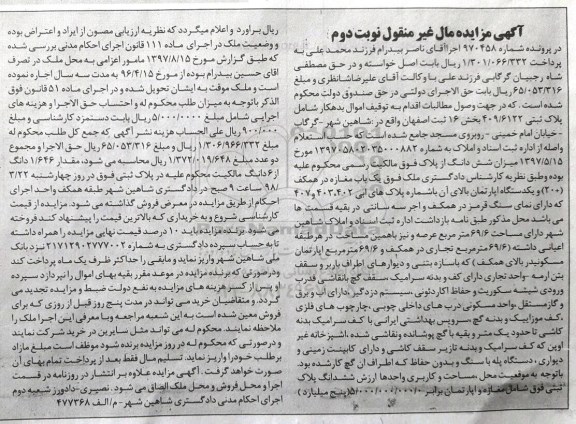 آگهی مزایده مال غیر منقول نوبت دوم
در پرونده شماره ۹۷۰۴۵۸ اجرا آقای ناصر بیدرام فرزند محمد علی به
پرداخت ۱/۳۰۱/۰۶۶/۳۳۲ ریال بابت اصل خواسته و در حق مصطفی
شاه رجبیان گرگابی فرزند علی با وکالت آقای علیرضا شانظری و مبلغ
۶۵/۰۵۳/۳۱۶ ریال بابت حق الاجرای دولتی در حق صندوق دولت محکوم
شده است. که در جهت وصول مطالبات اقدام به توقیف اموال بدهکار شامل
پلاک ثبتی ۴۰۹/۶۱۲۲ بخش ۱۶ ثبت اصفهان واقع در: شاهین شهر - گرگاب
- خیابان امام خمینی - روبروی مسجد جامع شده است.
واصله از اداره ثبت اسناد و املاک به شماره
۱۳۹۷/۵/۱۵ میزان شش دانگ از پلاک فوق مالکیت رسمی محکوم علیه
بوده وطبق نظریه کارشناس دادگستری ملک فوق یک باب مغازه در همکف
(۲۰۰) و یکدستگاه اپارتمان بالای آن باشماره پلاک های آبی ۴۰۲، ۴۰۳ و ۴۰۷
که دارای نمای سنگ قرمز در همکف و اجر سه سانتی در بقیه قسمت ها
می باشد محل مذکور طبق نامه بازداشت اداره ثبت اسناد و املاک شاهین
شهر دارای مساحت ۶۹/۶ متر مربع عرصه و نیز باهمین مساحت در هر طبقه
اعیانی داشته (۶۹/۶ مترمربع تجاری در همکف و ۶۹/۶ مترمربع اپارتمان
مسکونی در بالای همکف) که باسازه بتنی و دیوارهای اطراف باربر و سقف
بتن ارمه - واحد تجاری دارای کف و بدنه سرامیک سقف گچ بانقاشی درب
ورودی شیشه سکوریت و حفاظ اکاردئونی سیستم دزدگیر، دارای آب و برق
و گاز مستقل، واحد مسکونی درب های داخلی چوبی، چارچوب های فلزی
، کف موزاییک و بدنه گچ، سرویس بهداشتی ایرانی با کف سرامیک بدنه
کاشی تا حدود یک متر و بقیه با گچ پوشانده و نقاشی شده، اشپزخانه غیر
اوپن که کف سرامیک و بدنه تا زیر سقف کاشی و دارای کابینت زمینی و
دیواری، دستگاه پله با سنگ و بدون حفاظ که اطراف آن گچ کاری شده بود.
با توجه به موقعیت محل، مساحت و کاربری واحدها ارزش ششدانگ پلاک
ثبتی فوق شامل مغازه و اپارتمان برابر ۵/۰۰۰/۰۰۰/۰۰۰ (پنج میلیارد)
ریال براورد و اعلام میگردد که نظریه ارزیابی مصون از ایراد و اعتراض بوده
و وضعیت ملک در اجرای ماده ۱۱۱ قانون اجرای احکام مدنی بررسی شده
که طبق گزارش مورخ ۱۳۹۷/۸/۱۵ مامور اعزامی به محل ملک در تصرف
اقای حسین بیدرام بوده از مورخ ۹۶/۴/۱۵ به مدت سه سال اجاره نموده
است و ملک موقت به ایشان تحویل شده و در اجرای ماده ۵۱ قانون فوق
الذکر باتوجه به میزان طلب محکوم له و احتساب حق الاجرا و هزینه های
اجرایی شامل مبلغ ۵/۰۰۰/۰۰۰ ریال بابت دستمزد کارشناسی و مبلغ
۹۰۰/۰۰۰ ریال علی الحساب هزینه نشر آگهی که جمع کل طلب محکوم له
مبلغ ۱/۳۰۶/۹۶۶/۳۳۲ ریال و مبلغ ۶۵/۰۵۳/۳۱۶ ریال حق الاجرا و مجموع
دو عدد مبلغ ۱/۳۷۲/۰۱۹/۶۴۸ ریال محاسبه می شود، مقدار ۱/۶۴۶ دانگ
از ۶ دانگ مالکیت محکوم علیه در پلاک ثبتی فوق در روز چهارشنبه ۳/۲۲
/۹۸ ساعت ۹ صبح در دادگستری شاهین شهر طبقه همکف واحد اجرای
احکام از طریق مزایده در معرض فروش گذاشته می شود. مزایده از قیمت
کارشناسی شروع و به خریداری که بالاترین قیمت را پیشنهاد کند فروخته
می شود برنده مزایده باید ۱۰ درصد قیمت نهایی مزایده را همراه داشته
تا به حساب سپرده دادگستری به شماره ۲۱۷۱۲۹۰۲۷۷۰۰۲ نزد بانک
ملی شاهین شهر واریز نماید و مابقی را حداکثر ظرف یک ماه پرداخت کند
ودر صورتی که برنده مزایده در موعد مقرر بقیه بهای اموال را نپردازد سپرده
او پس از کسر هزینه های مزایده به نفع دولت ضبط و مزایده تجدید می
گردد و متقاضیان خرید می توانند در مدت پنج روز قبل از روزی که برای
فروش معین شده است به این شعبه مراجعه و با معرفی این اجرا ملک را
ملاحظه نمایند. محکوم له می تواند مثل سایرین در خرید شرکت نمایند
و درصورتی که محکوم له در روز مزایده برنده شود موظف است مبلغ مازاد
بر طلب خود را واریز نماید. تسلیم مال فقط بعد از پرداخت تمام بهای آن
صورت خواهد گرفت. آگهی مزایده علاوه بر انتشار در روزنامه در قسمت
اجرا و محل فروش و محل ملک الصاق می شود. نصیری - دادورز شعبه دوم
اجرای احکام مدنی دادگستری شاهین شهر - م/الف ۴۷۷۳۶۸